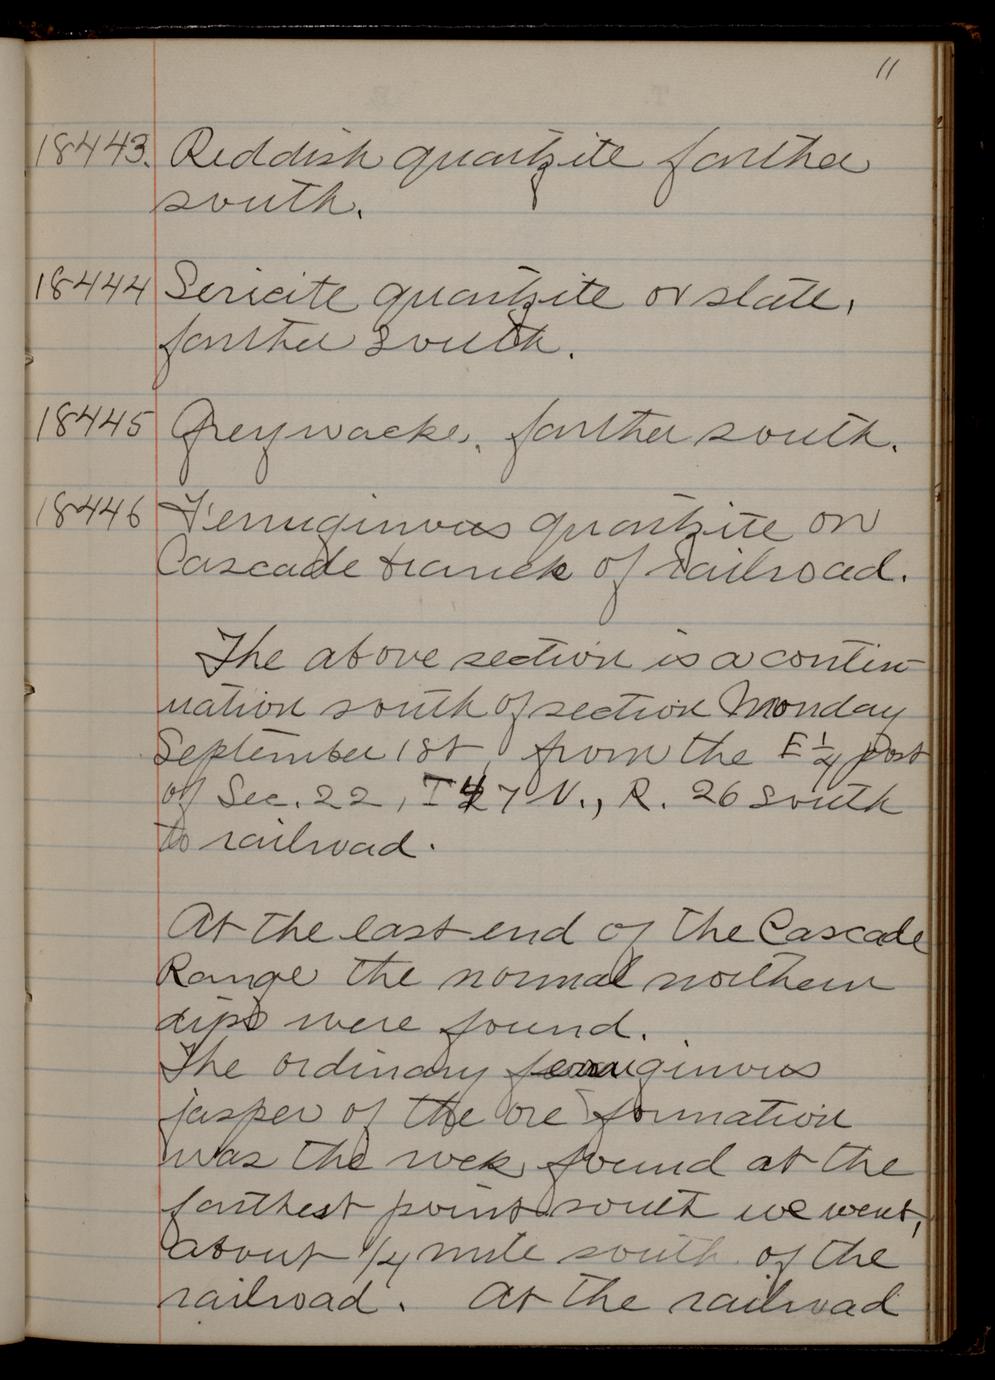 11
18443. Reddish quartzite farther
south.
18444 Sericite quartzite or slate,
farther south.
18445 Greywacke, farther south.
18446 Ferruginous quartzite on
Cascade branch of railroad.
The above section is a contin-
uation south of section Monday
September 1st, from the E 1/4 post
of Sec. 22, T 47 N., R. 26 south
to railroad.
At the east end of the Cascade
Range the normal northern
dips were found.
The ordinary ferruginous
jasper of the ore formation
was the rock found at the
farthest point south we went,
about 1/4 mile south of the
railroad. At the railroad